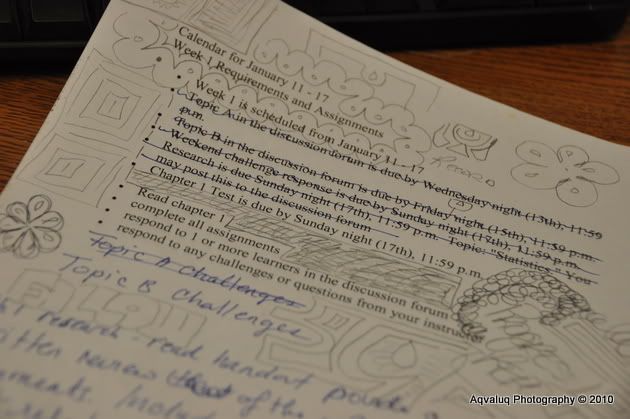 Calendar for January 11 - 17
Week 1 Requirements and Assignments
Week 1 is scheduled from January 11 - 17
Topic A in the discussion forum is due by Wednesday night (13th), 11:59
p.m.
Topic B in the discussion forum is due by Friday night (15th), 11:59 p.m.
Weekend challenge response is due by Sunday night (17th), 11:59 p.m.
Research is due Sunday night (17th), 11:59 p.m. Topic: "Statistics." You
may post this to the discussion forum
Chapter 1 Test is due by Sunday night (17th), 11:59 p.m.
Read chapter 1
complete all assignments
respond to 1 or more learners in the discussion forum
respond to any challenges or questions from your instructor
Topic A Challenges
Topic B Challenges
research - read handout
written review of the
Aqvaluq Photography © 2010